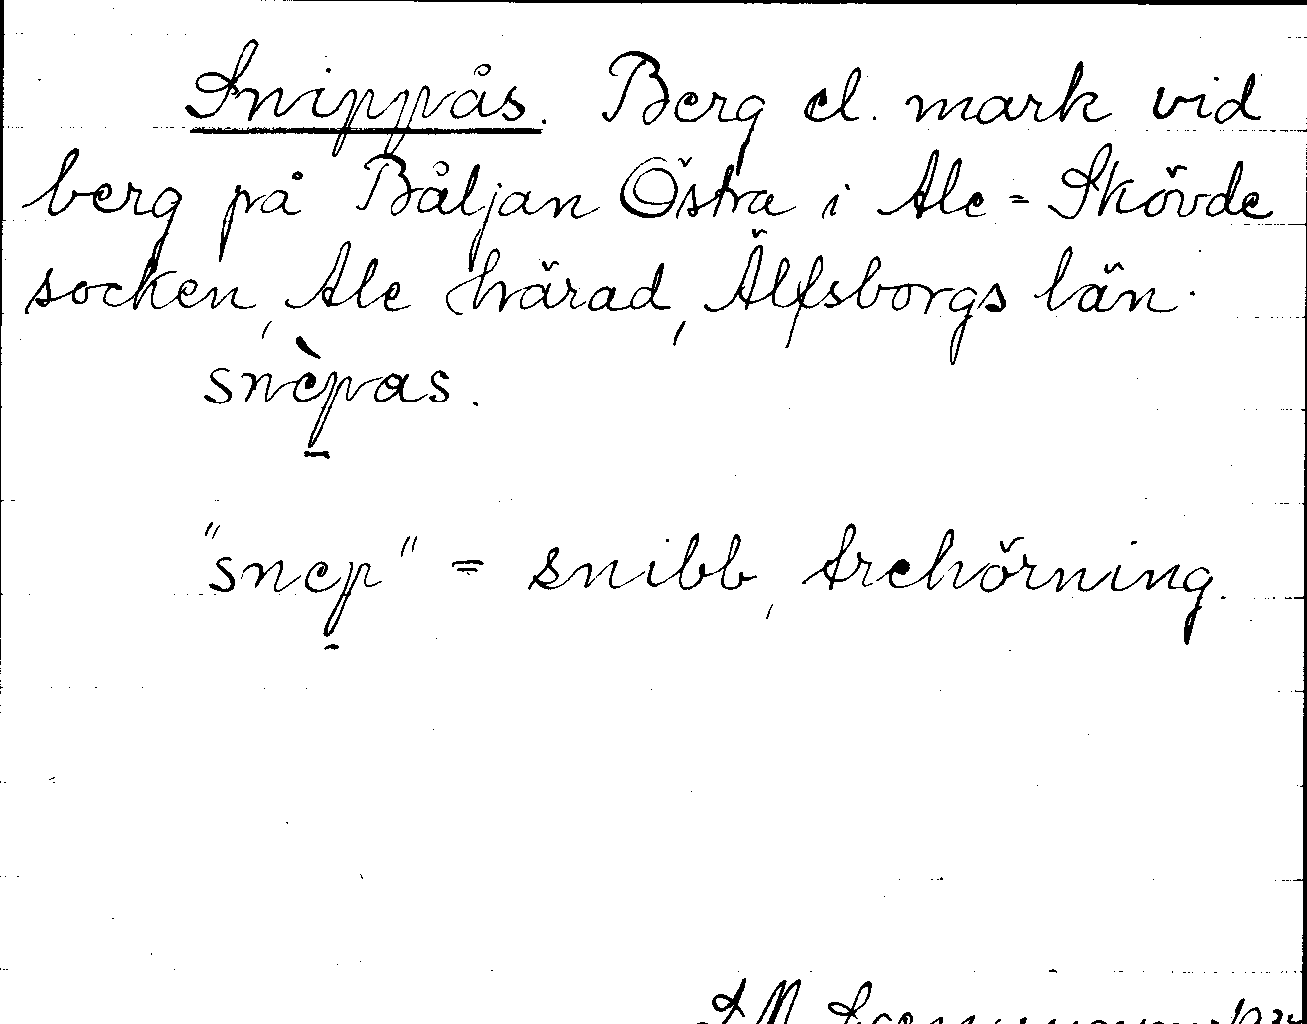 Snippås. Berg el. mark vid
berg på Båljan Östra i Ale-Skövde
socken, Ale härad, Älfsborgs län.
snèpas.
"snep" = snibb, trehörning.